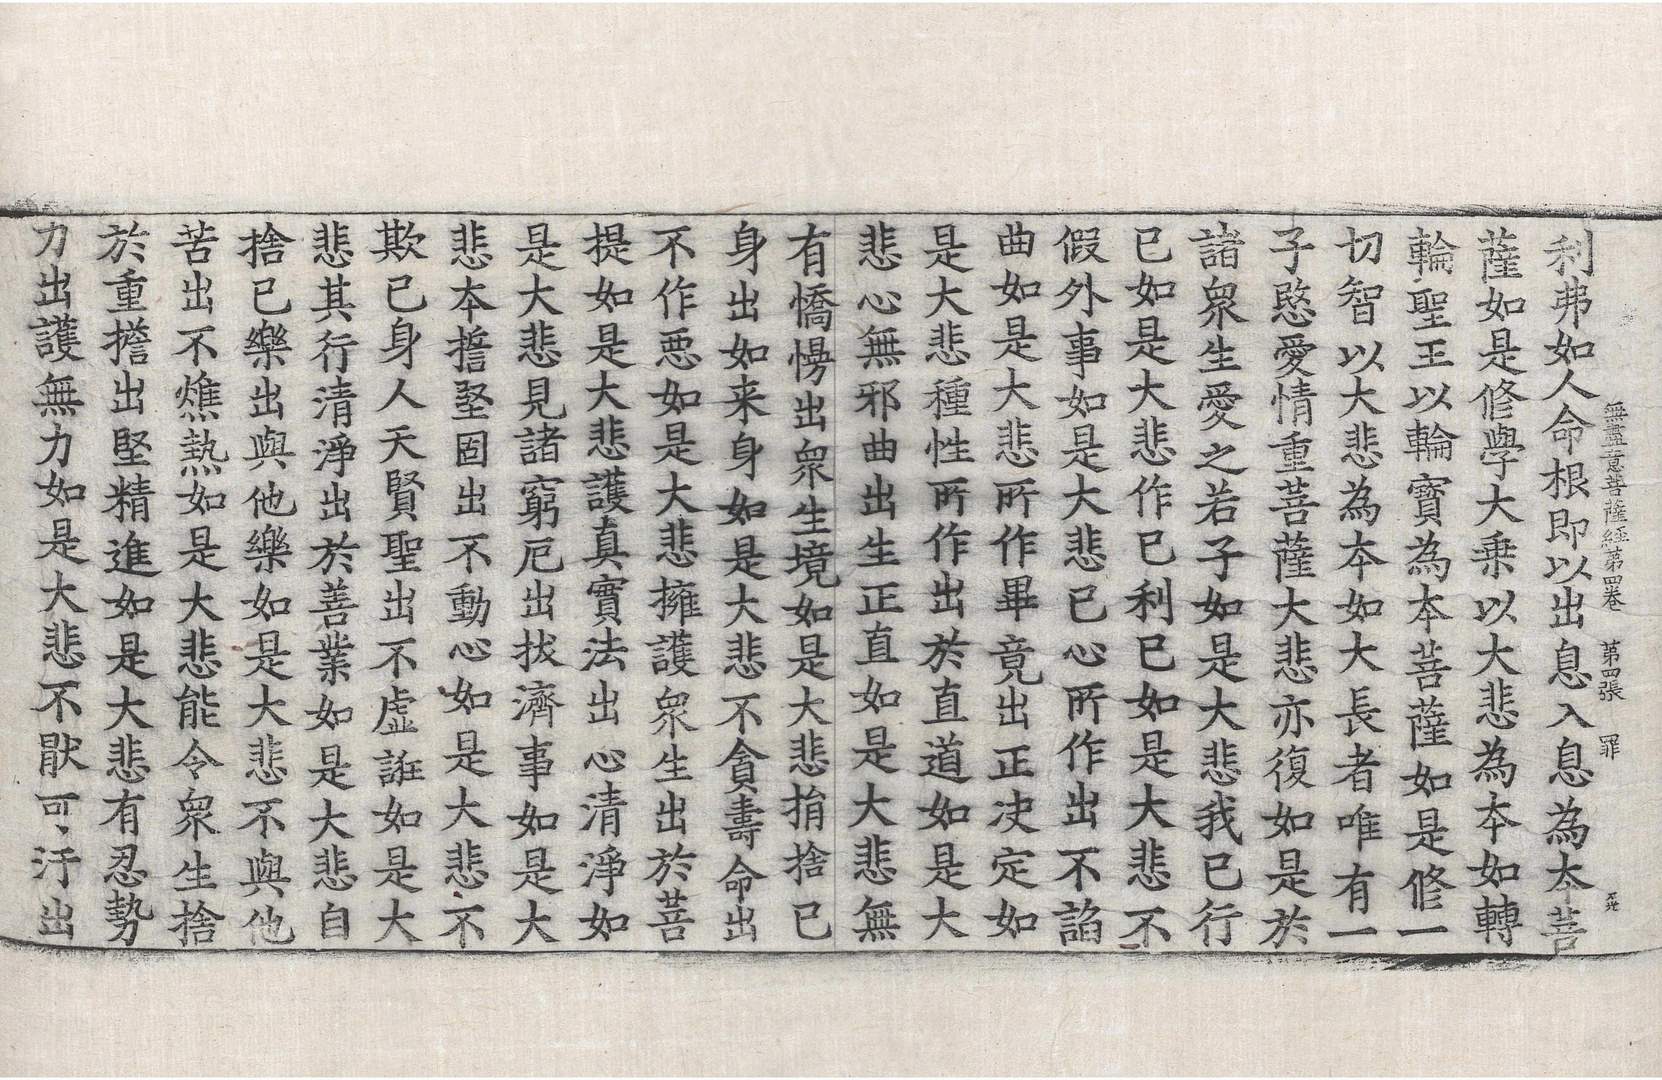 無盡意菩薩經第四卷　第四張　罪
利弗如人命根即以出息入息為本菩
薩如是修學大乗以大悲為本如轉
輪聖王以輪寳為本菩薩如是修一
切智以大悲為本如大長者唯有一
子愍愛情重菩薩大悲亦復如是於
諸衆生愛之若子如是大悲我已行
已如是大悲作已利已如是大悲不
假外事如是大悲已心所作出不諂
曲如是大悲所作畢竟出正决定如
是大悲種性所作出於直道如是大
悲心無邪曲出生正直如是大悲無
有憍慢出衆生境如是大悲捐捨已
身出如来身如是大悲不貪壽命出
不作悪如是大悲擁護衆生出於菩
提如是大悲護真實法出心清淨如
是大悲見諸窮厄出拔濟事如是大
悲本誓堅固出不動心如是大悲不
欺已身人天賢聖出不虛誑如是大
悲其行清淨出於善業如是大悲自
捨已樂出與他樂如是大悲不與他
苦出不燋熱如是大悲能令衆生捨
於重擔出堅精進如是大悲有忍勢
力出護無力如是大悲不猒可汙出